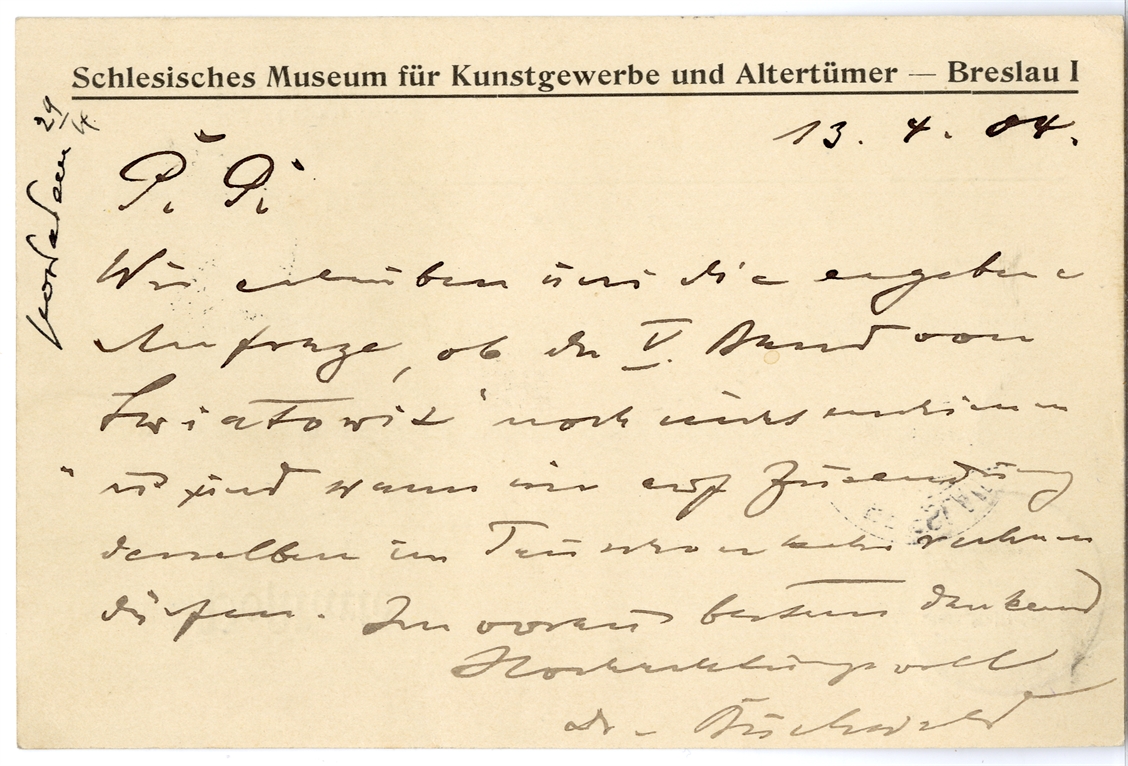 Schlesisches Museum für Kunstgewerbe und Altertümer — Breslau I
13. 4. 04.
29/4
P. P.
Wir erlauben uns die ergebene
Anfrage, ob der V. Band von
„Swiatowit“ noch nicht erschienen
ist und wann wir auf Zusendung
desselben im Tauschverkehr rechnen
dürfen. Im voraus bestens dankend
Hochachtungsvoll
Dr. Buchwald